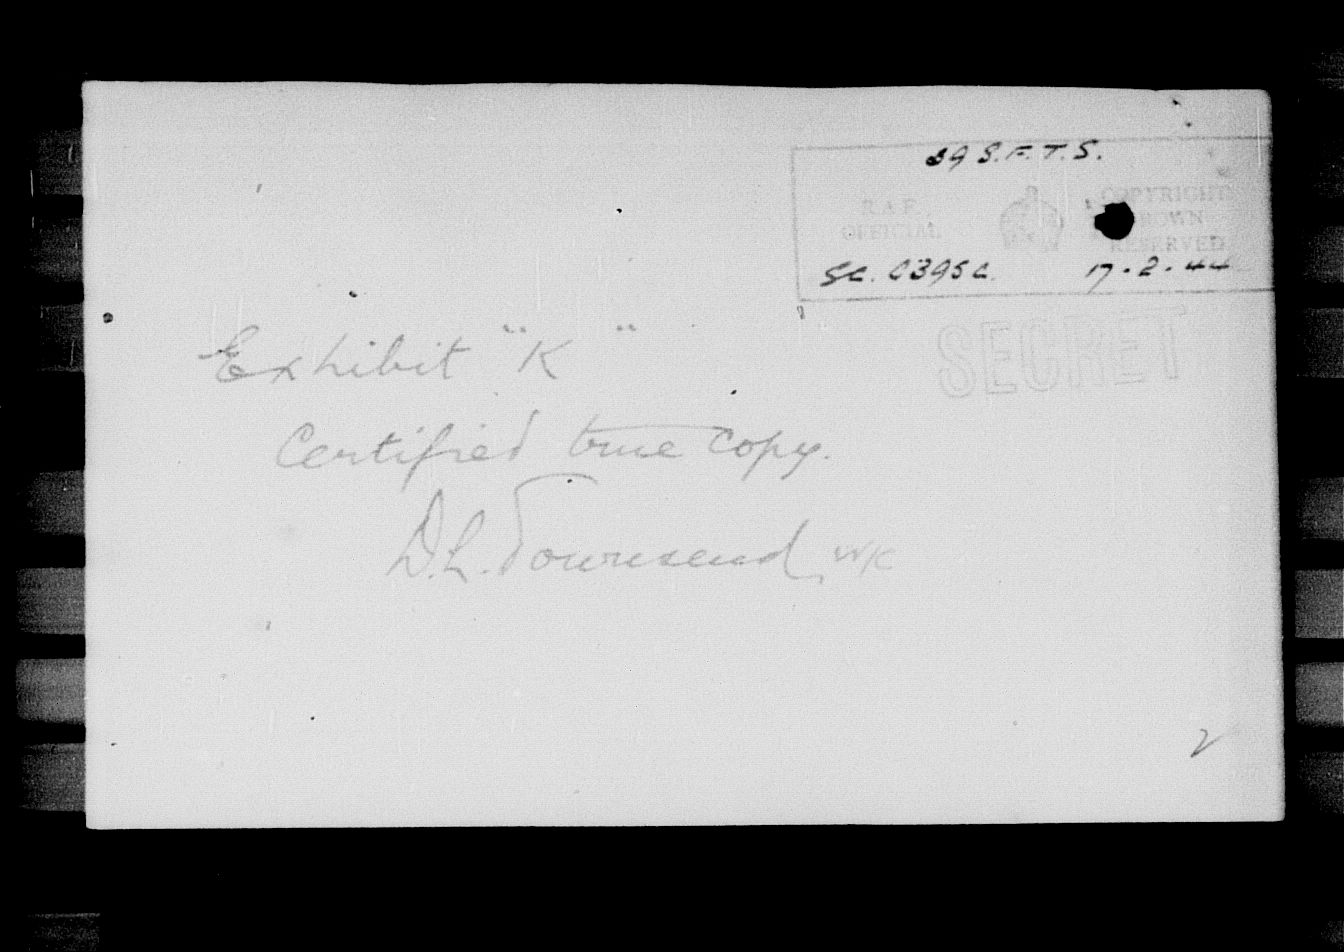 39 S.F.T.S.
R.A.F. OFFICIAL
COPYRIGHT CROWN RESERVED
SC. C395C. 17.2.44
SECRET
Exhibit "K"
Certified true copy.
D.L. Townsend W/C
2